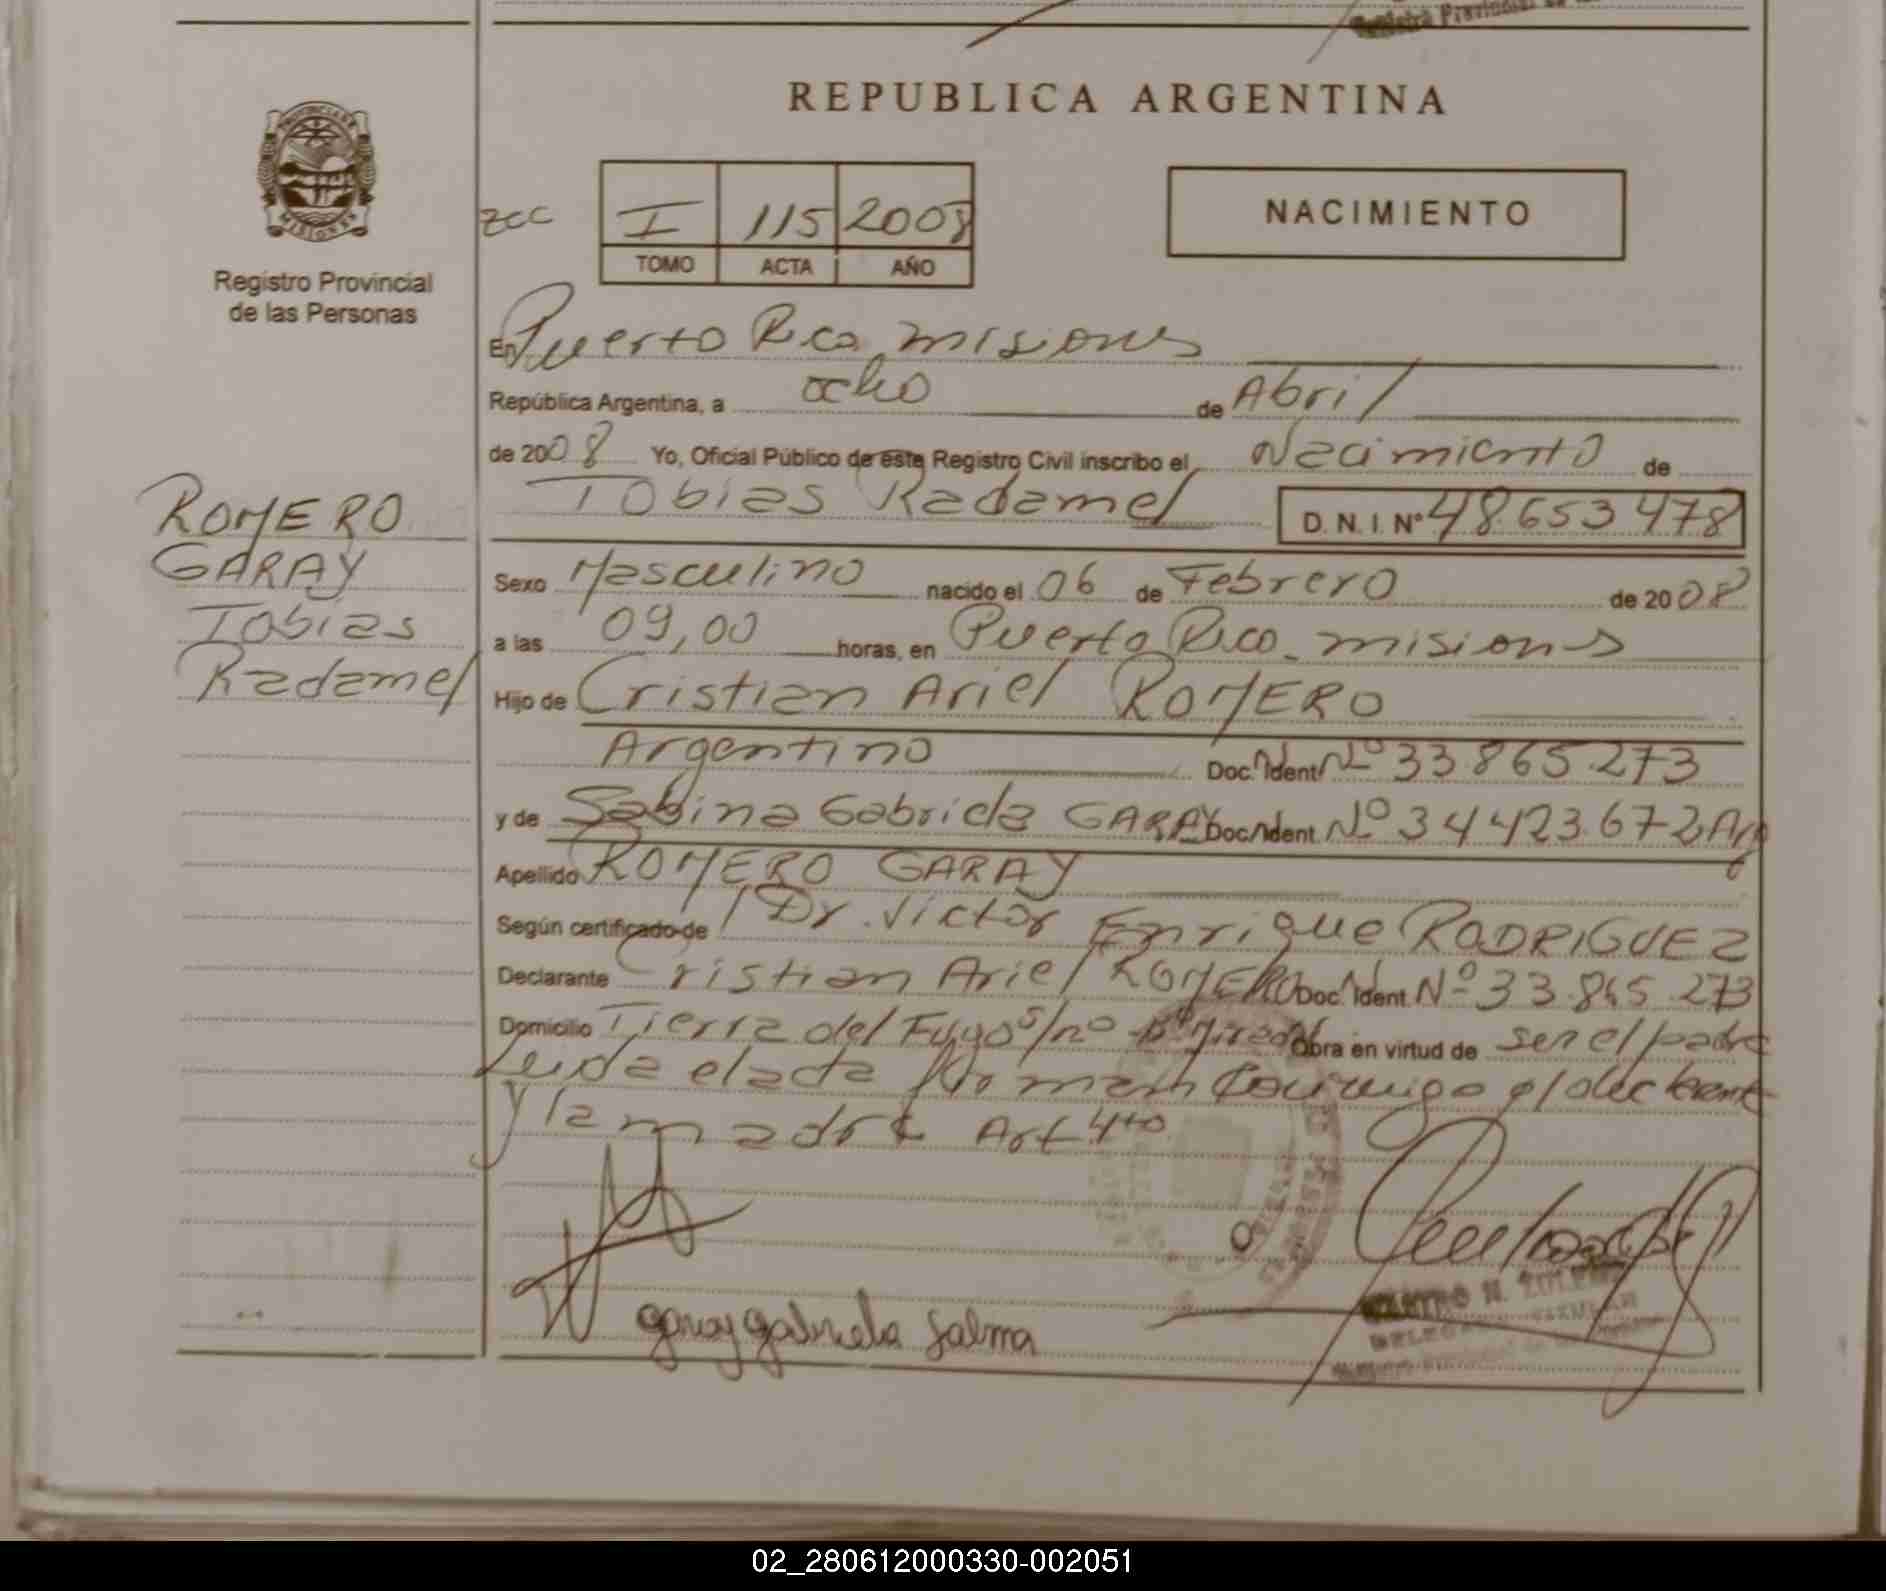 REPUBLICA ARGENTINA
PROVINCIA DE
MISIONES
Registro Provincial
de las Personas
zcc
I 115 2008
TOMO ACTA AÑO
NACIMIENTO
En Puerto Rico misiones
República Argentina, a ocho de Abril
de 2008 Yo, Oficial Público de este Registro Civil inscribo el Nacimiento de
Tobias Radamel D. N. I. Nº 48.653478
ROMERO
GARAY
Tobias
Radamel
Sexo Masculino nacido el 06 de Febrero de 2008
a las 09,00 horas, en Puerto Rico. misiones
Hijo de Cristian Ariel ROMERO
Argentino Doc. Ident. Nº 33.865.273
y de Sabina Gabriela GARAY Doc. Ident. Nº 34423.672 Arg
Apellido ROMERO GARAY
Según certificado de Dr. Victor Enrique RODRIGUEZ
Declarante Cristian Ariel ROMERO Doc. Ident. Nº 33.865.273
Domicilio Tierra del Fugo s/nº Obra en virtud de ser el padre
Leida el acta firman conmigo el declarante
y la madre Art 4to
garay gabriela
02_280612000330-002051